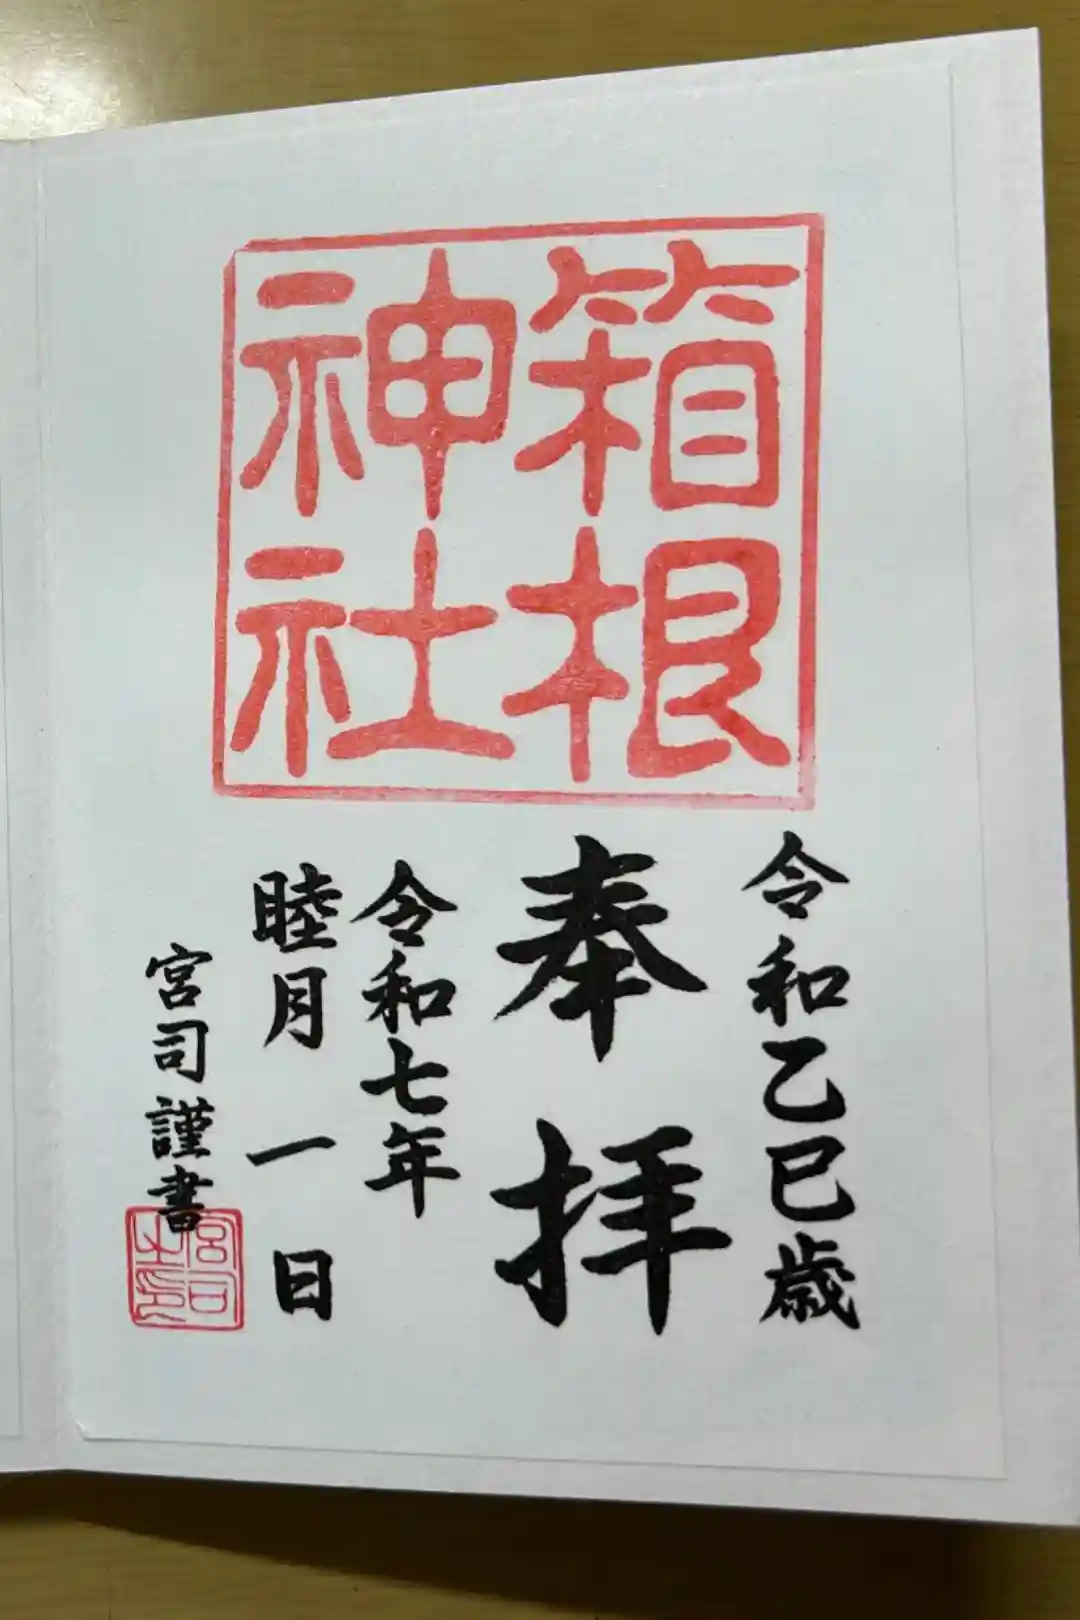 箱根
神社
令和乙巳歳
奉拝
令和七年
睦月一日
宮司謹書
宮司
之印